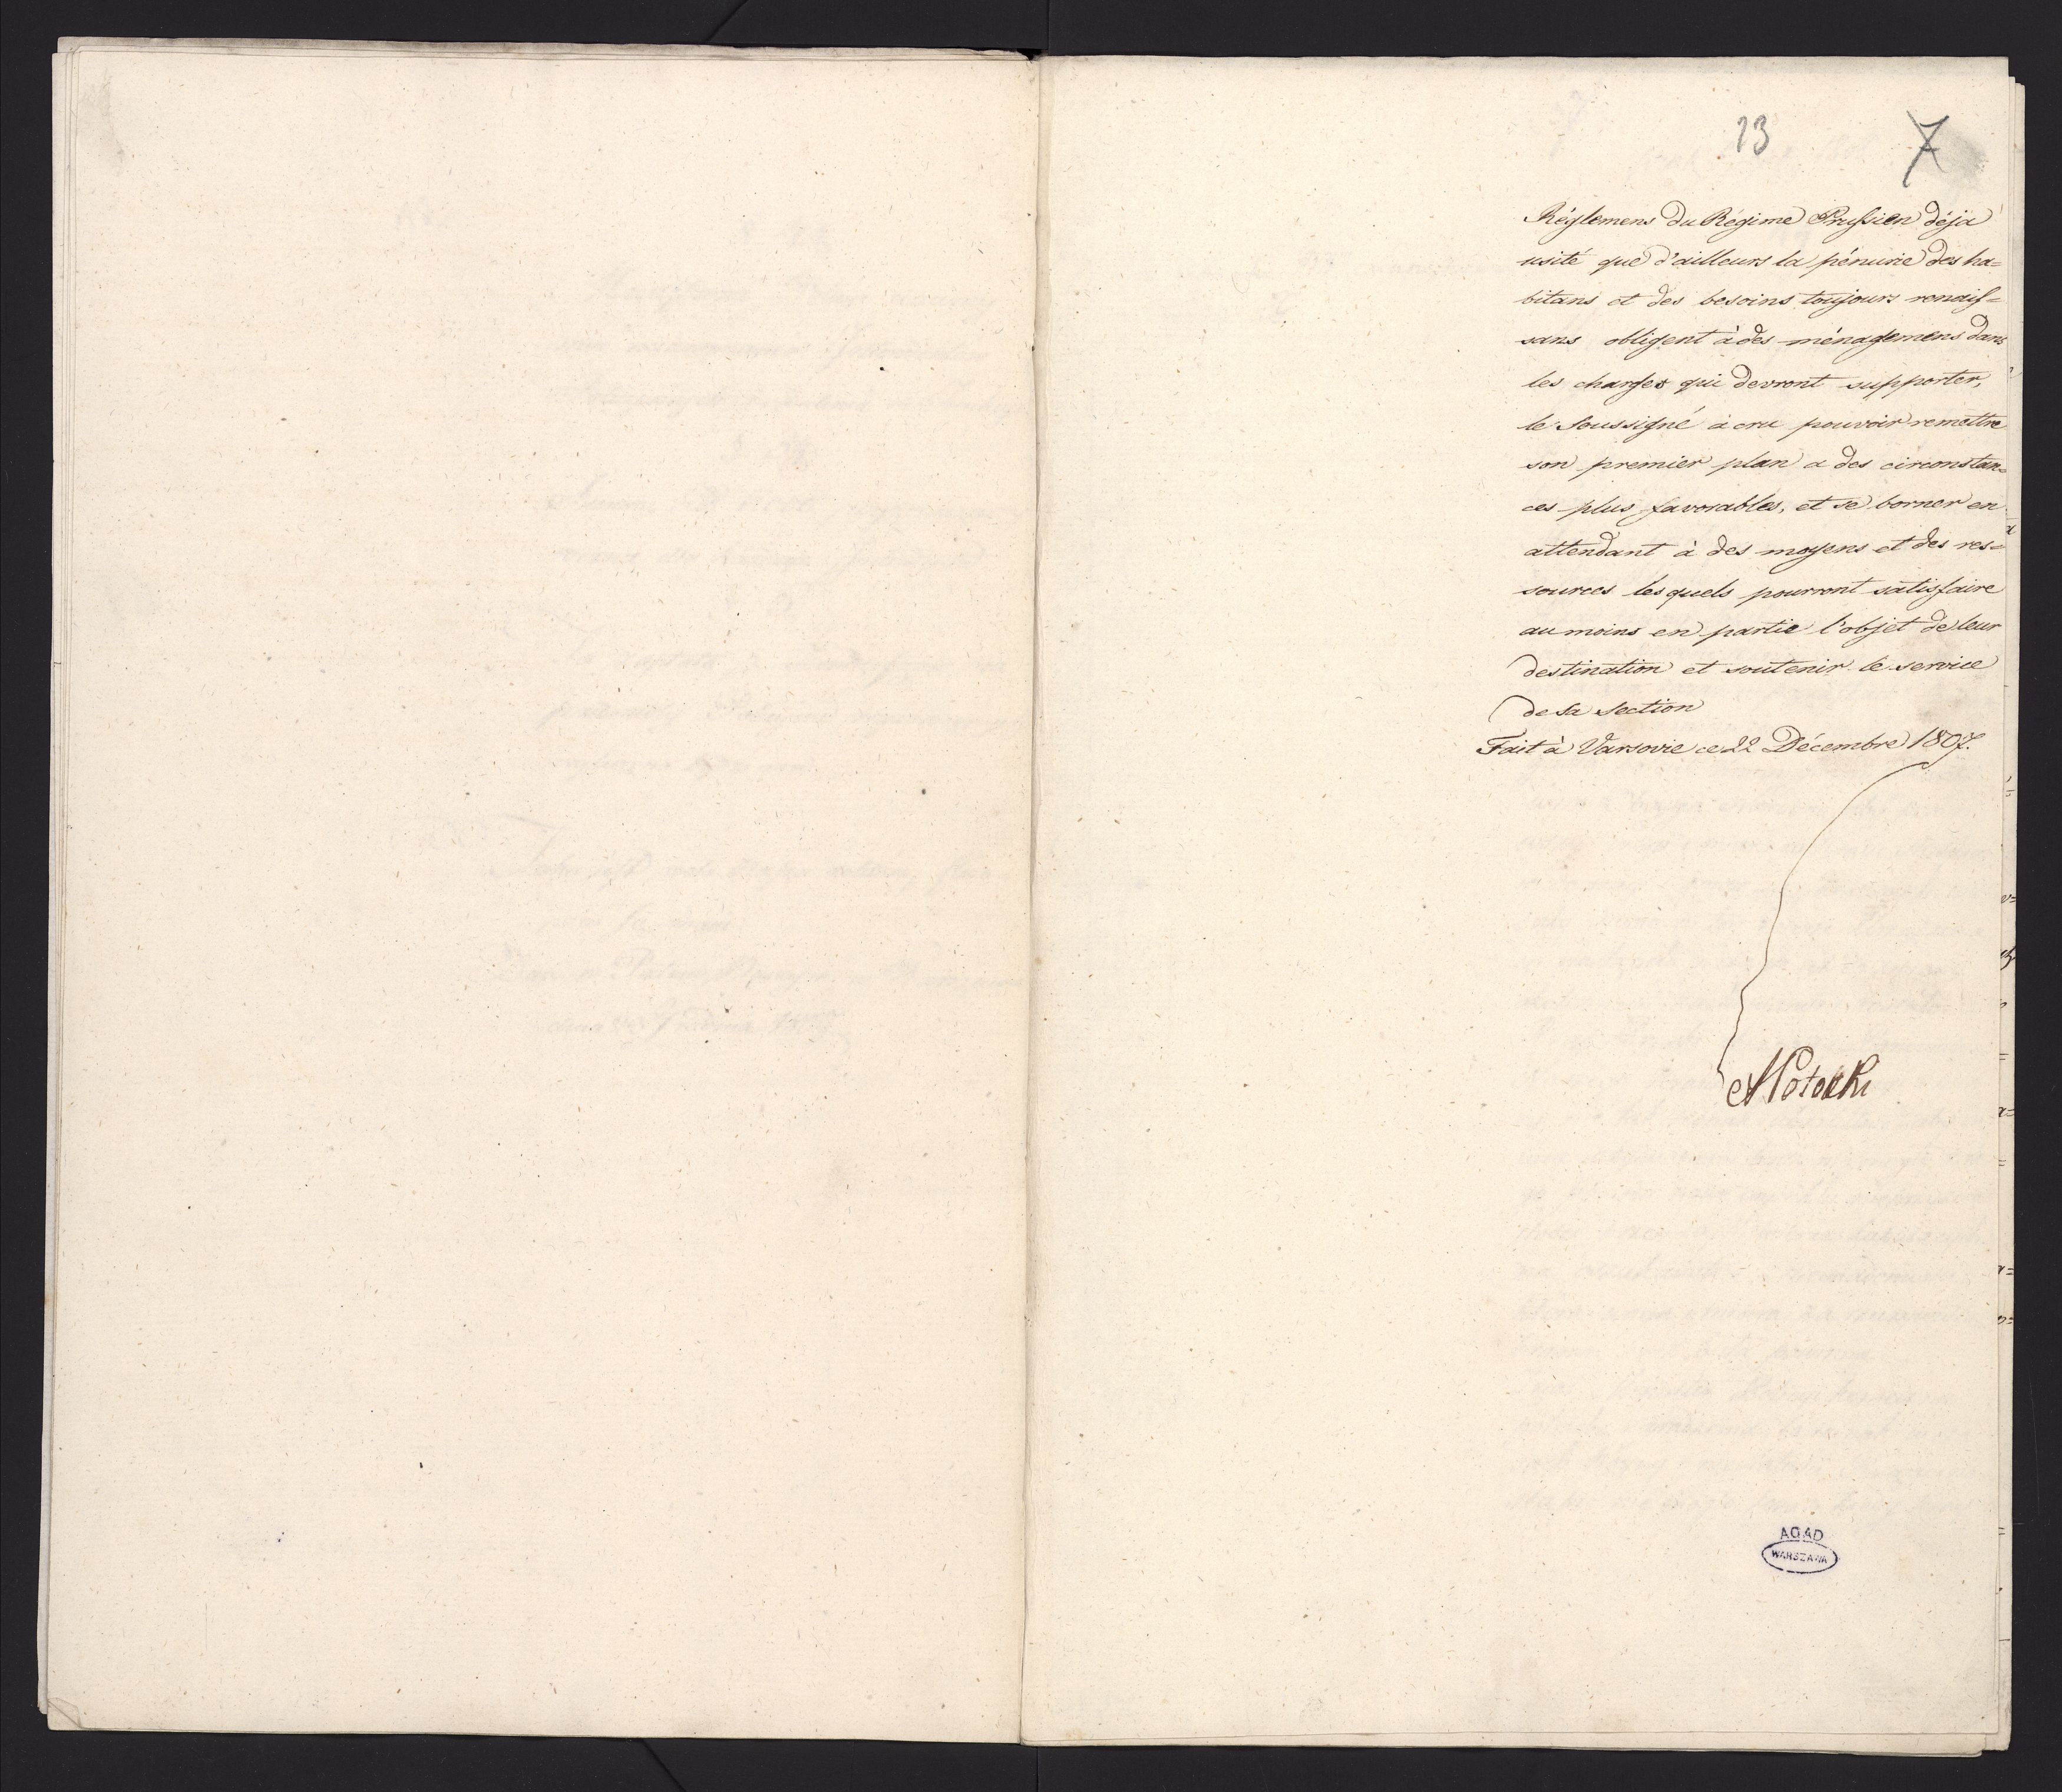 13 7
Réglemens du Régime Prussien déja
usité que d'ailleurs la pénurie des ha=
bitans et des besoins toujours renais=
sans obligent à des ménagemens dans
les charges qui devront supporter,
le Soussigné a cru pouvoir remettre
son premier plan a des circonstan=
ces plus favorables, et se borner en
attendant à des moyens et des res=
sources lesquels pourront satisfaire
au moins en partie l'objet de leur
destination et soutenir le service
de sa section
Fait à Varsovie ce 22 Décembre 1807.
APotocki
AGAD
WARSZAWA